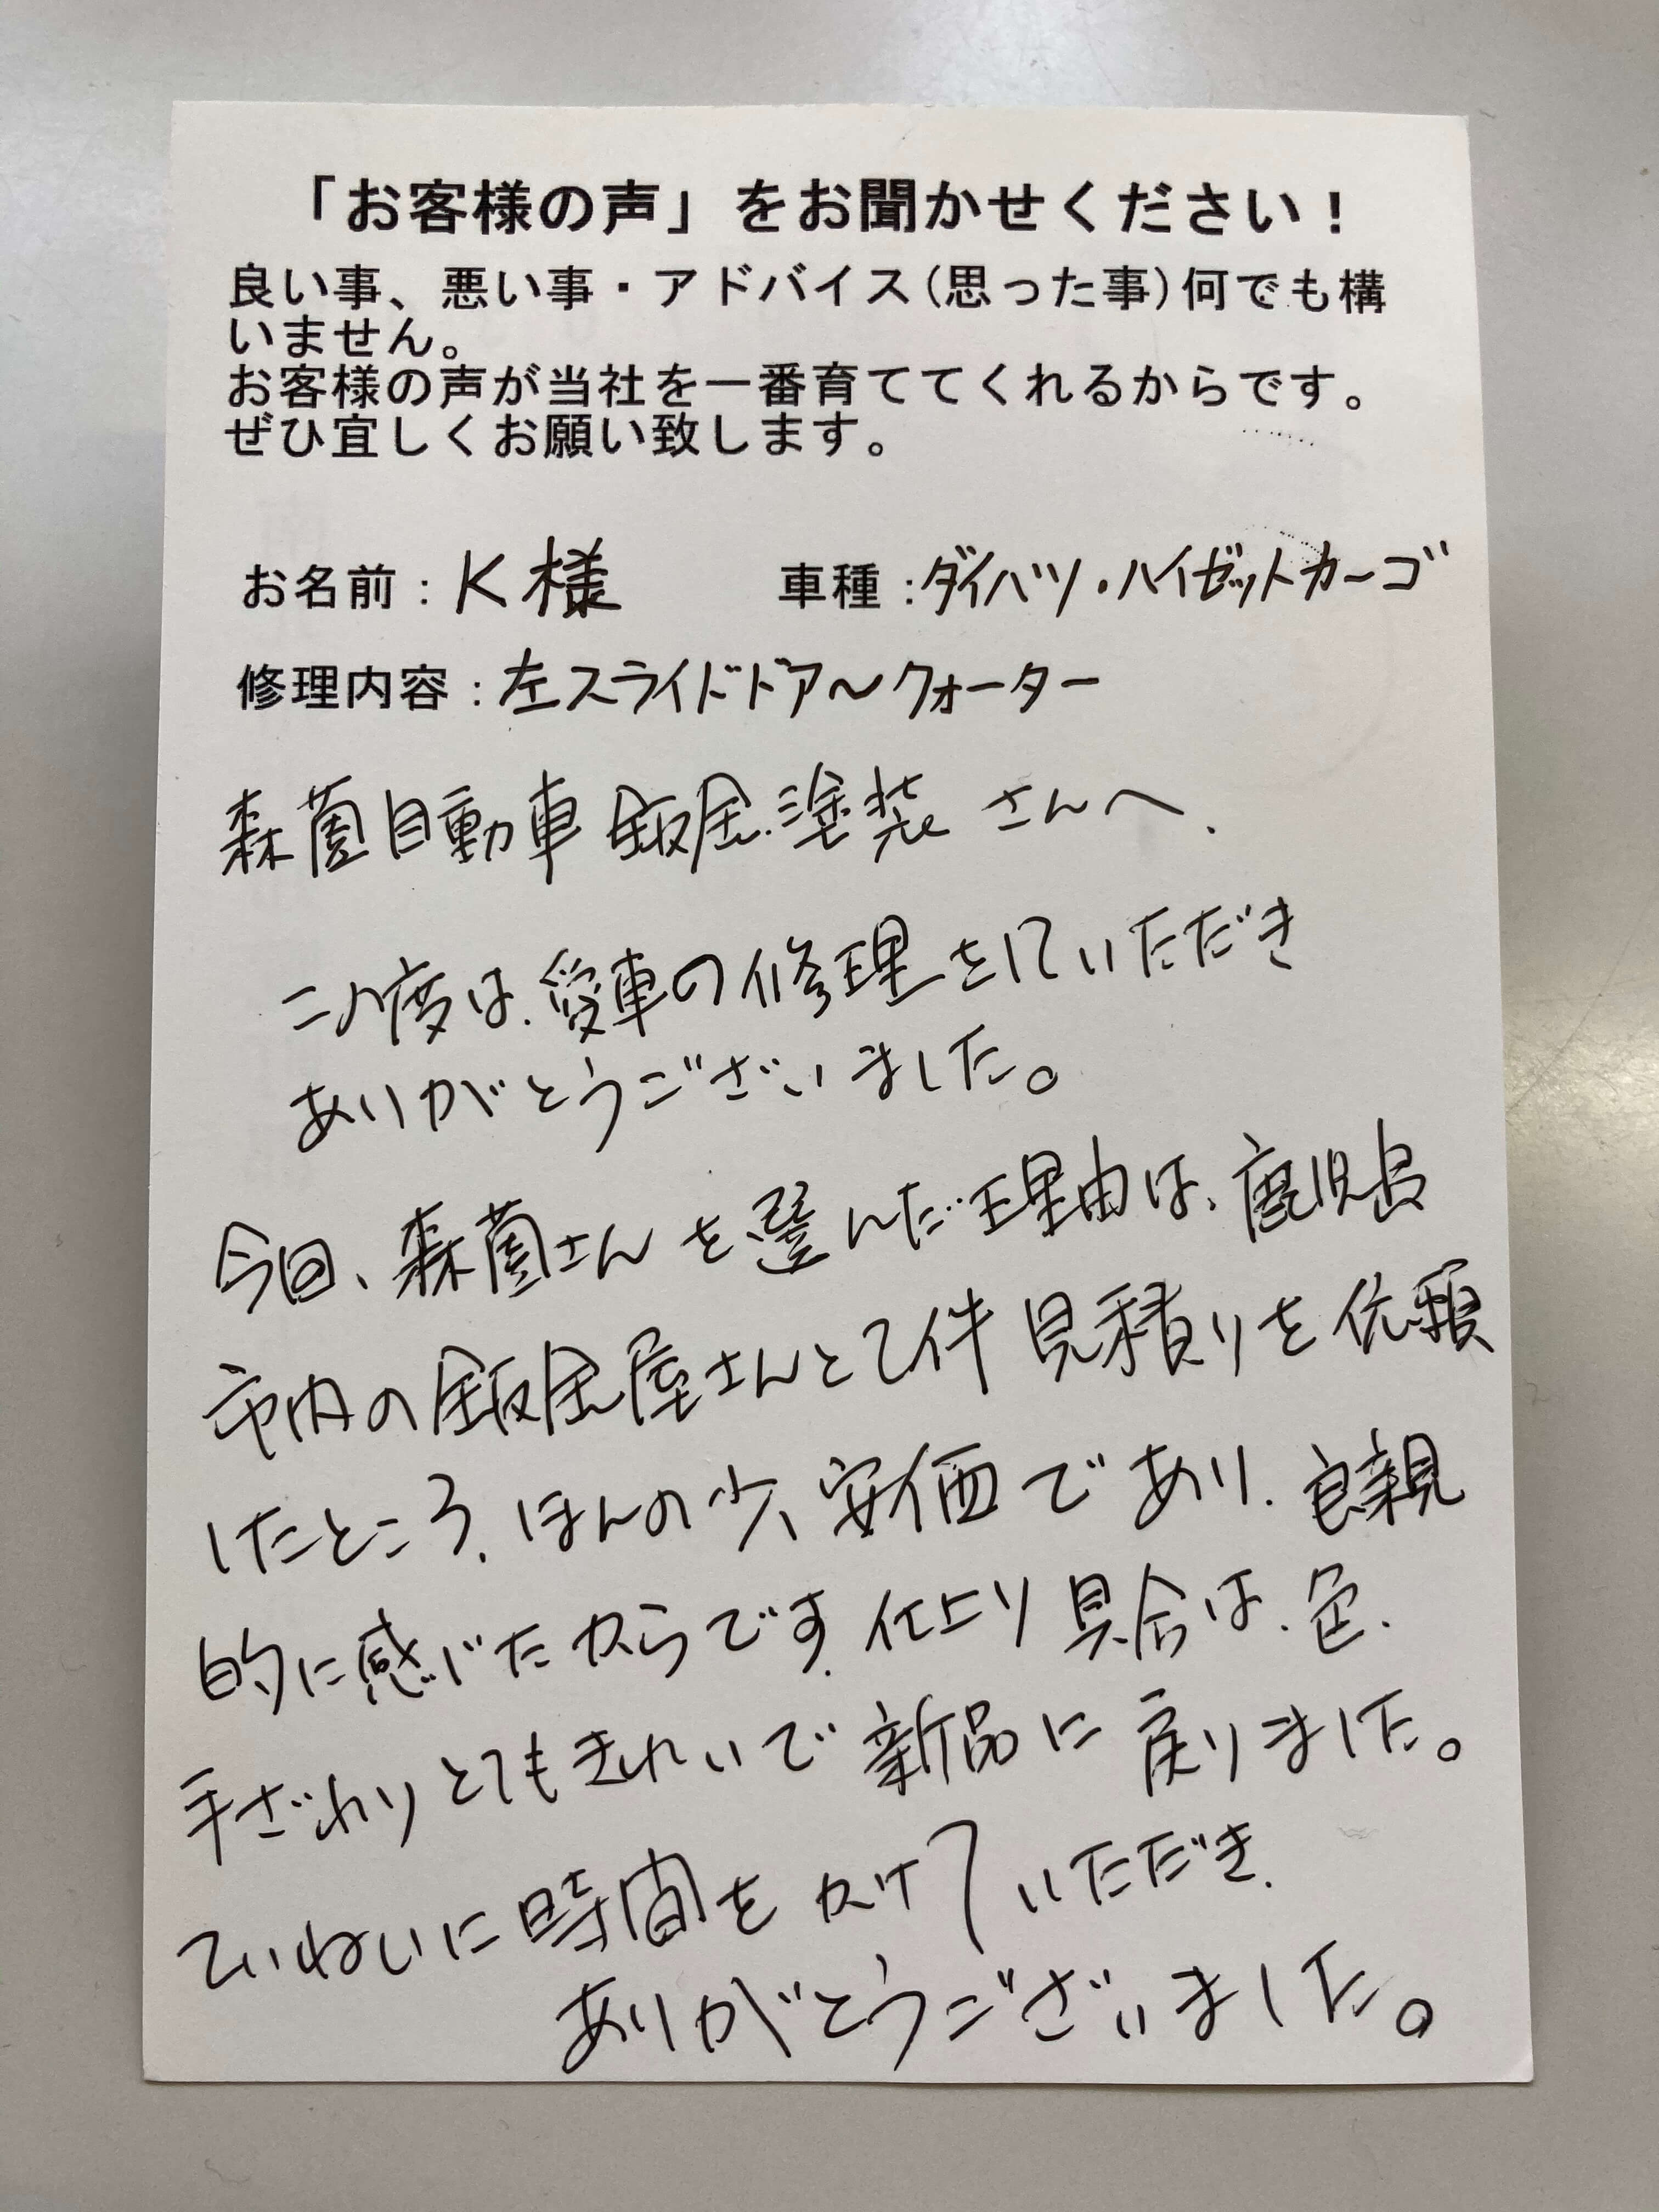 「お客様の声」をお聞かせください！
良い事、悪い事・アドバイス(思った事)何でも構
いません。
お客様の声が当社を一番育ててくれるからです。
ぜひ宜しくお願い致します。
お名前：K様　車種：ダイハツ・ハイゼットカーゴ
修理内容：左スライドドア〜クォーター
森薗自動車鈑金塗装さんへ、
この度は、愛車の修理をしていただき
ありがとうございました。
今回、森薗さんを選んだ理由は、鹿児島
市内の鈑金屋さんと2件見積りを依頼
したところ、ほんの少、安価であり、良親
的に感じたからです。仕上り具合は、色、
手ざわりとてもきれいで新品に戻りました。
ていねいに時間をかけていただき、
ありがとうございました。